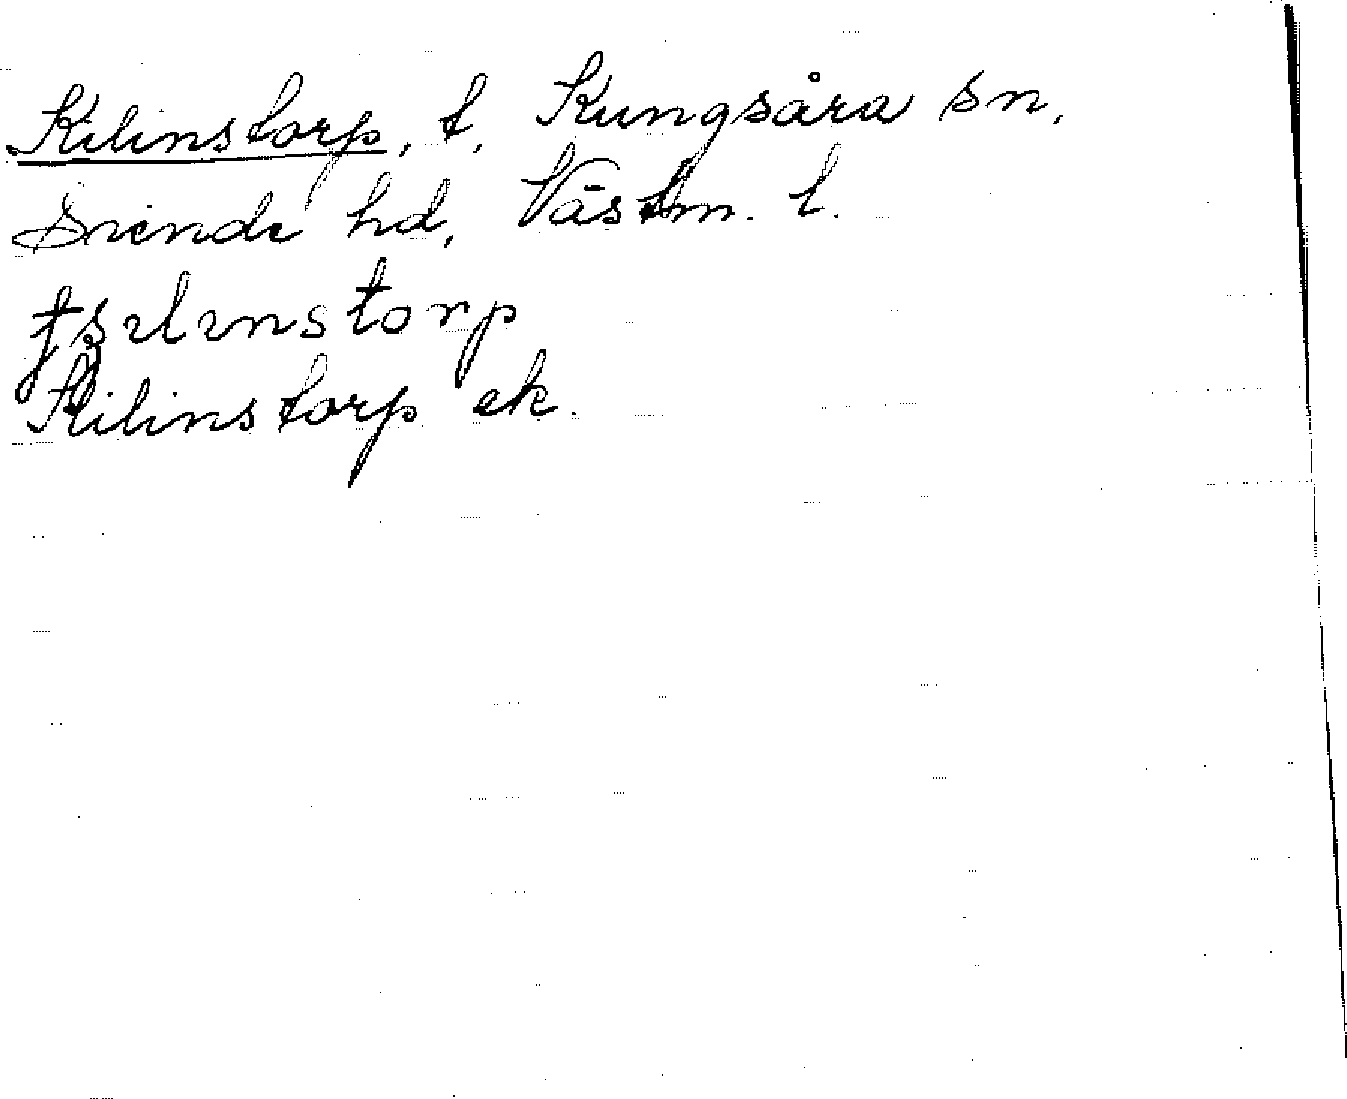 Kilinstorp, t, Kungsåra sn,
Siende hd, Västm. l.
Kilinstorp ek.